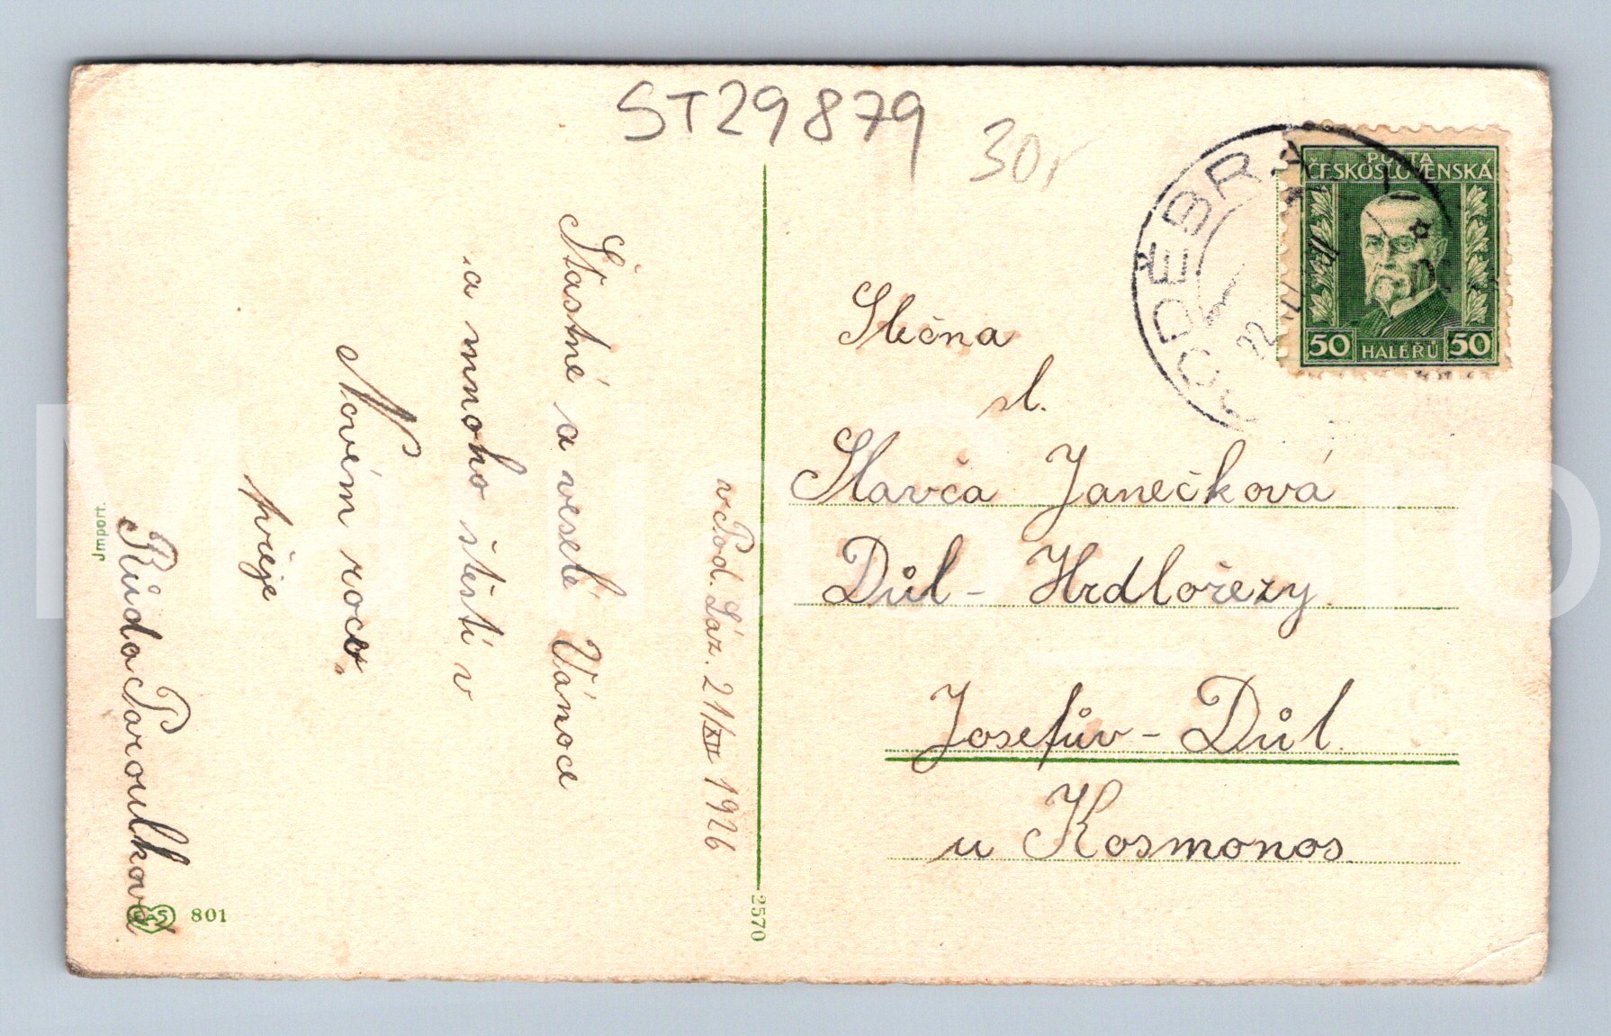 ST29879
30,-
v Pod. Láz. 21/XII 1926
Štastné a veselé Vánoce
a mnoho štestí v
Novém roce.
přeje
Růda Paroulková
Jmport.
801
2570
PODĚBRADY
POŠTA
ČESKOSLOVENSKÁ
50 HALÉŘŮ 50
Slečna
sl.
Slavča Janečková
Důl - Hrdlořezy
Josefův - Důl.
u Kosmonos.